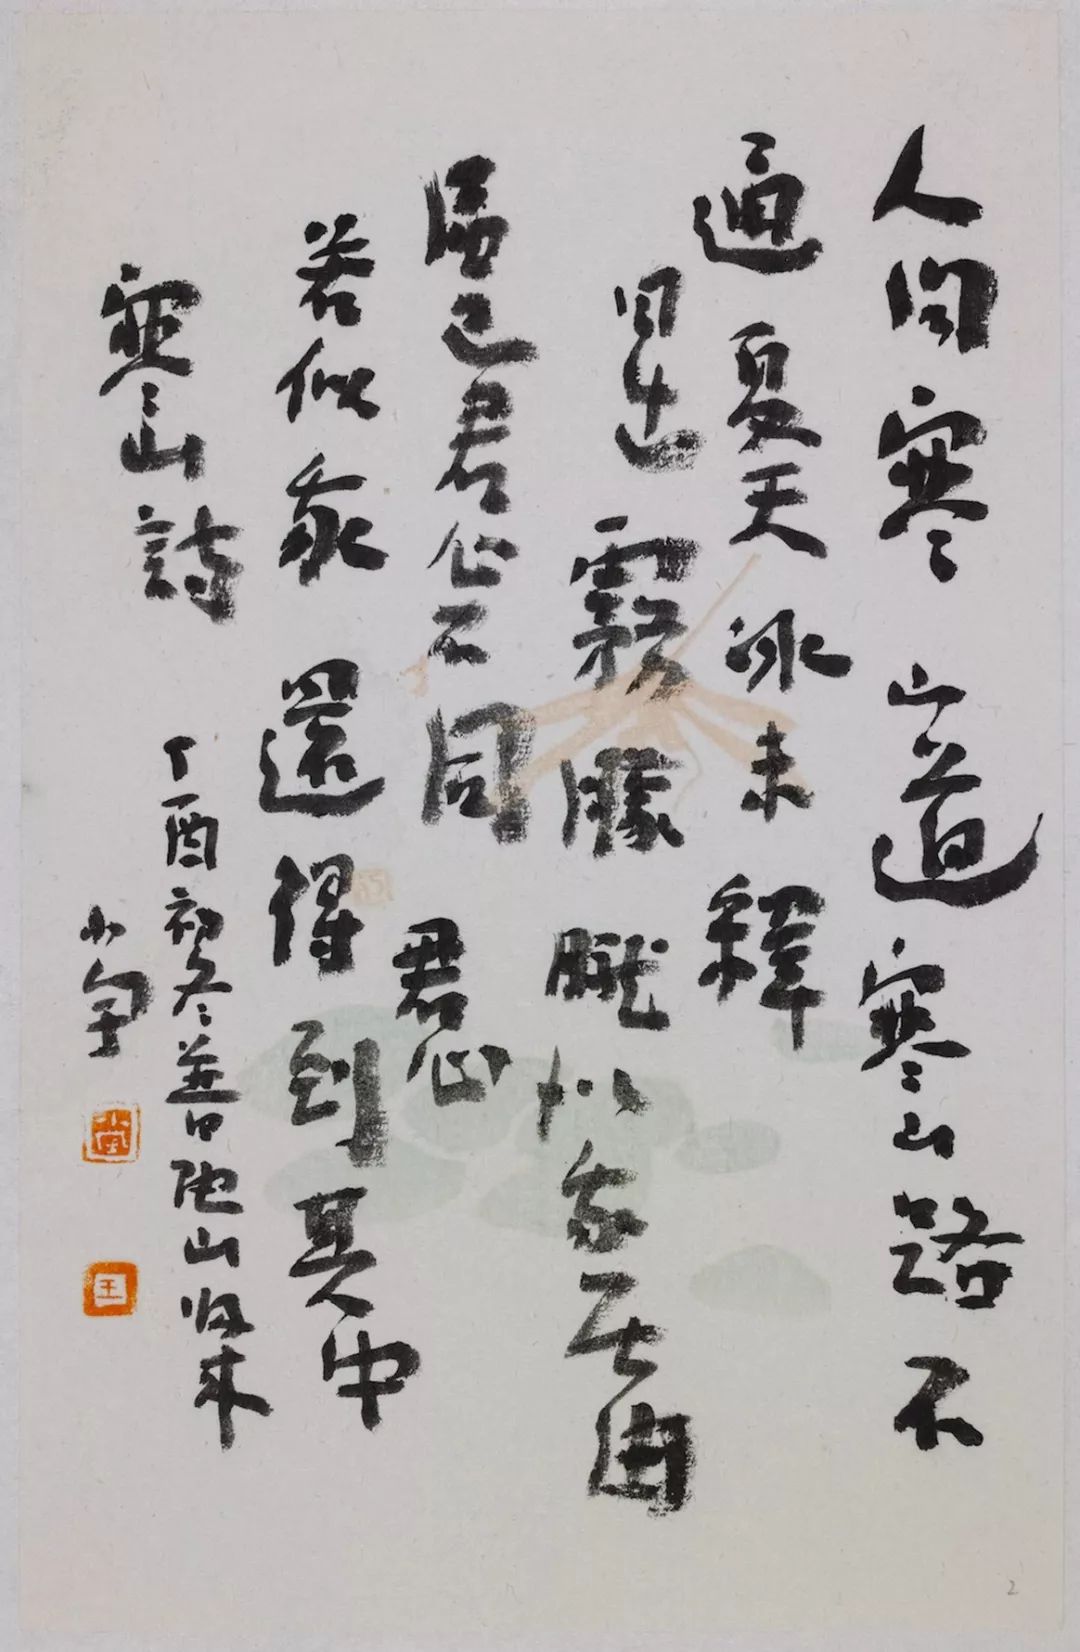 人问寒山道寒山路不
通夏天冰未釋
日出霧朦朧似我何由
屆与君心不同君心
若似我還得到其中
寒山詩
丁酉初冬普陀山归来
小
王
2